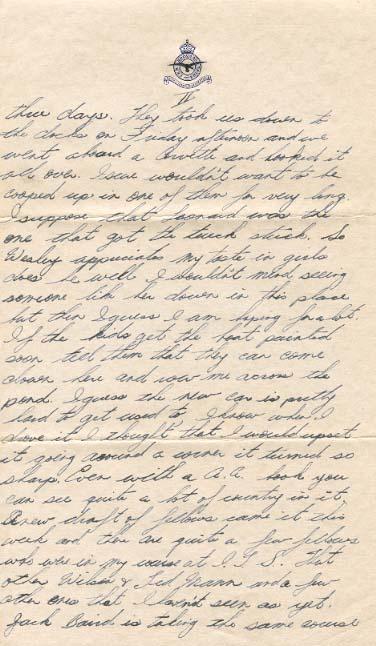 IV
three days. They took us down to
the docks on Friday afternoon and we
went aboard a Corvette and looked it
all over. I sure wouldn't want to be
cooped up in one of them for very long.
I suppose that was the
one that got the truck stuck. So
Wesley appreciates my taste in girls
does he well I wouldn't mind seeing
someone like her down in this place
but then I guess I am hoping for a lot.
If the kids get the boat painted
soon tell them that they can come
down here and row me across the
pond. I guess the new car is pretty
hard to get used to I know when I
drove it I thought that I would upset
it going around a corner it turned so
sharp. Even with a A.A. book you
can see quite a bit of country in it.
A new draft of fellows came it this
week and there are quite a few fellows
who were in my course at I.T.S. That
other Wilson & Ted Mann and a few
other ones that I haven't seen as yet.
Jack Baird is taking the same course